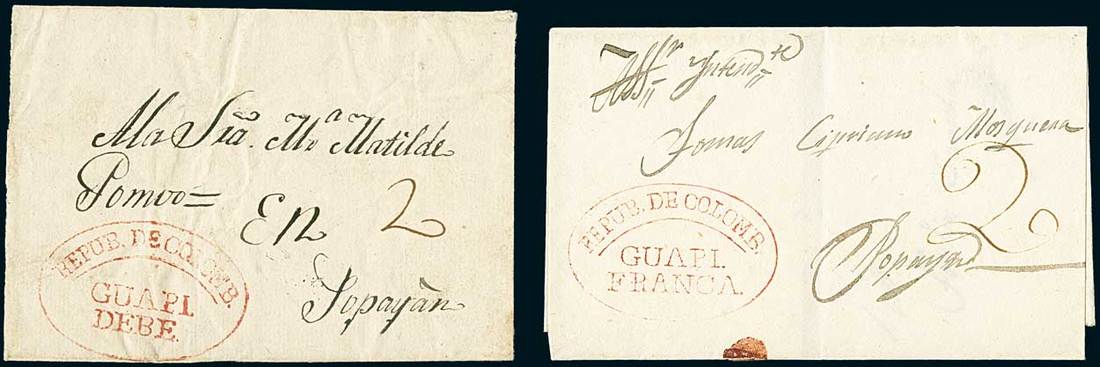 A la Sra. Ma Matilde
Pomvo=
En 2
Popayán
REPUB. DE COLOMB.
GUAPI.
DEBE.
Al Sr Yntendte
Tomas Cipriano Mosquera
2
Popayan
REPUB. DE COLOMB.
GUAPI.
FRANCA.